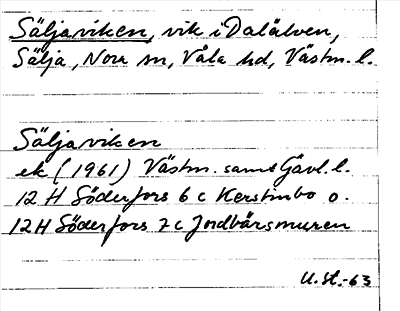 Säljaviken, vik i Dalälven,
Sälja, Nora sn, Våla hd, Västm. l.
Säljaviken
ek (1961) Västm. samt Gävl. l.
12 H Söderfors 6 c Kerstinbo o.
12 H Söderfors 7 c Jordbärsmuren
U. St. -63